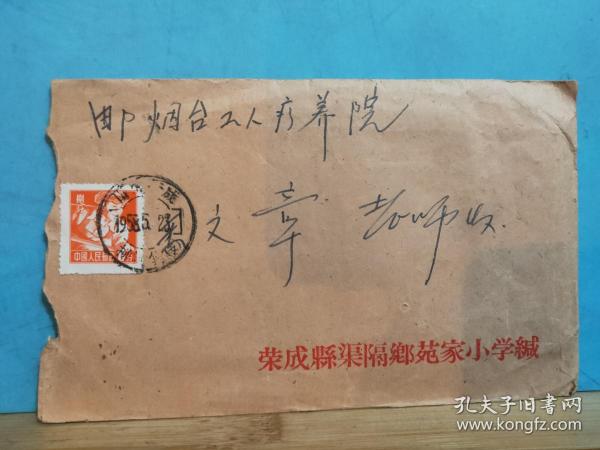 邮烟台工人疗养院
文章 老师收
1958.5.23
中国人民邮政
荣成縣渠隔鄉苑家小学緘
孔夫子旧书网
www.kongfz.com